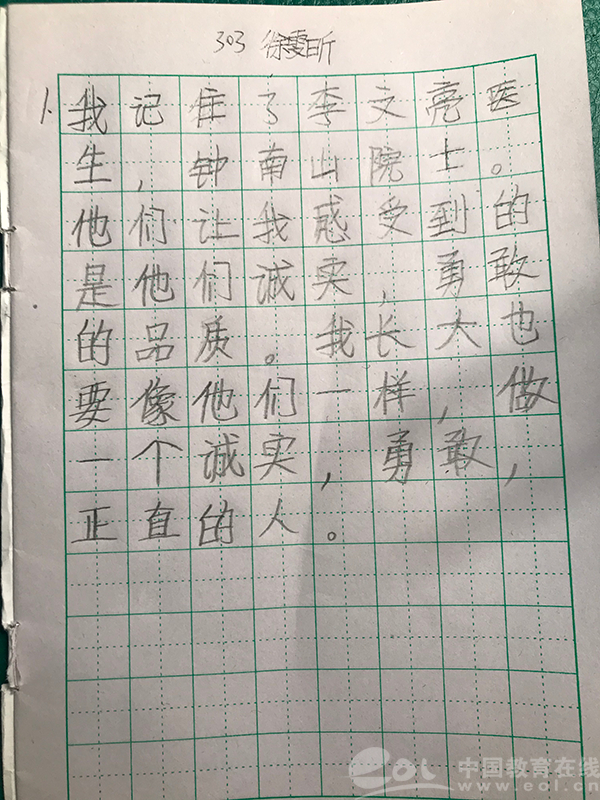 303 徐雯昕
1. 我记住了李文亮医
生，钟南山院士。
他们让我感受到的
是他们诚实，勇敢
的品质。我长大也
要像他们一样，做
一个诚实，勇敢，
正直的人。
eol 中国教育在线
www.eol.cn